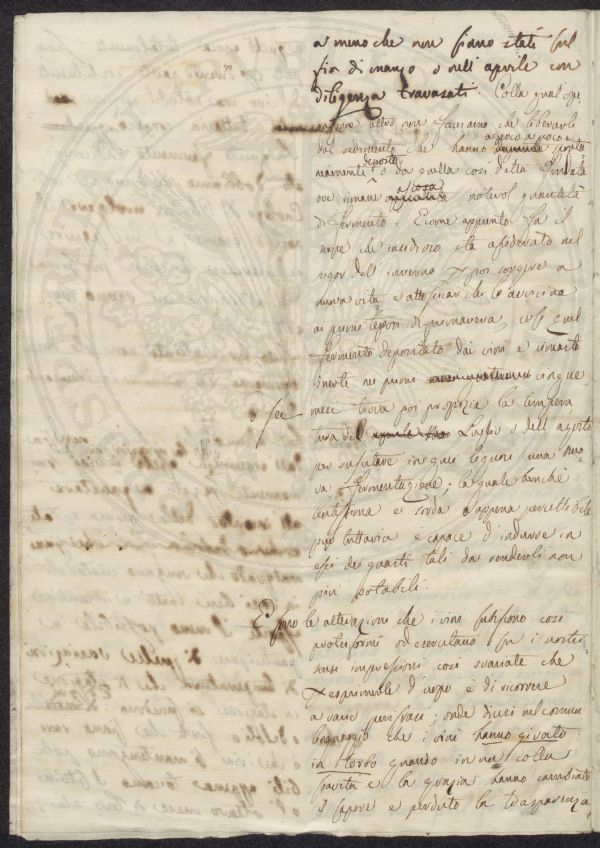 a meno che non siano stati sul
fin di marzo o nell'aprile con
diligenza travasati. Colla qual ope
razione altro non facciamo che liberarli
dal sedimento che hanno a poco a poco e
namente deposto o da quella così detta fondata
ove rimane ascosa notevol quantità
di fermento. E come appunto fa il
serpe che insidioso sta assiderato nel
rigor dell'inverno e poi sorgere a
nuova vita e attossicar chi lo avvicina
ai primi tepori di primavera, così quel
fermento depositato dai vini e rimasto
inerte nei primi cinque
o sei
mesi trova poi propizia la tempera
tura del Luglio o dell'agosto
per suscitare in quei liquori una nuo
va fermentazione, la quale benchè
lentissima e sorda e appena percettibile
può tuttavia e capace d'indurre in
essi dei guasti tali da renderli non
più potabili.
E sono le alterazioni che i vini subiscono così
proteiformi ed esercitano su i nostri
sensi impressioni così svariate che
esprimerle è d'uopo di ricorrere
a varie perifrasi; onde dicesi nel comun
linguaggio che i vini hanno girato
in torbo quando in un colla
soavità e la grazia hanno cambiato
il sapore e perduto la trasparenza